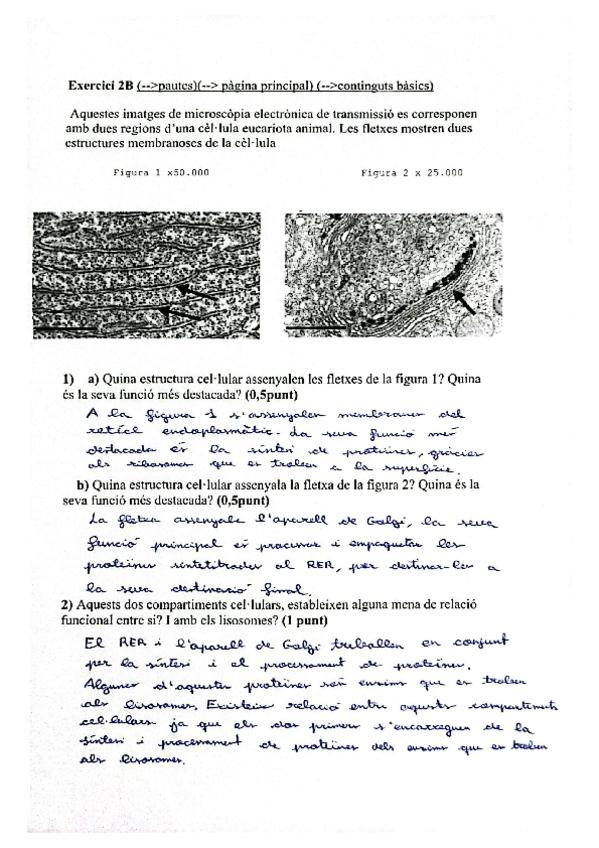 Exercici 2B (-->pautes)(--> pàgina principal) (-->continguts bàsics)
Aquestes imatges de microscòpia electrònica de transmissió es corresponen
amb dues regions d'una cèl·lula eucariota animal. Les fletxes mostren dues
estructures membranoses de la cèl·lula
Figura 1 x50.000
Figura 2 x 25.000
1) a) Quina estructura cel·lular assenyalen les fletxes de la figura 1? Quina
és la seva funció més destacada? (0,5punt)
A la figura 1 s'assenyalen membranes del
reticle endoplasmàtic. La seva funció més
destacada és la síntesi de proteïnes, gràcies
als ribosomes que es troben a la superfície.
b) Quina estructura cel·lular assenyala la fletxa de la figura 2? Quina és la
seva funció més destacada? (0,5punt)
La fletxa assenyala l'aparell de Golgi, la seva
funció principal és processar i empaquetar les
proteïnes sintetitzades al RER, per destinar-les a
la seva destinació final.
2) Aquests dos compartiments cel·lulars, estableixen alguna mena de relació
funcional entre si? I amb els lisosomes? (1 punt)
El RER i l'aparell de Golgi treballen en conjunt
per la síntesi i el processament de proteïnes.
Algunes d'aquestes proteïnes són enzims que es troben
als lisosomes. Existeix relació entre aquests compartiments
cel·lulars ja que els dos primers s'encarreguen de la
síntesi i processament de proteïnes dels enzims que es troben
als lisosomes.